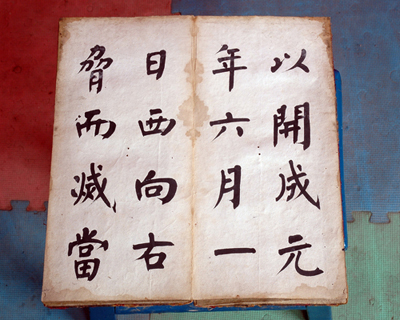 以開成元
年六月一
日西向右
脅而滅當